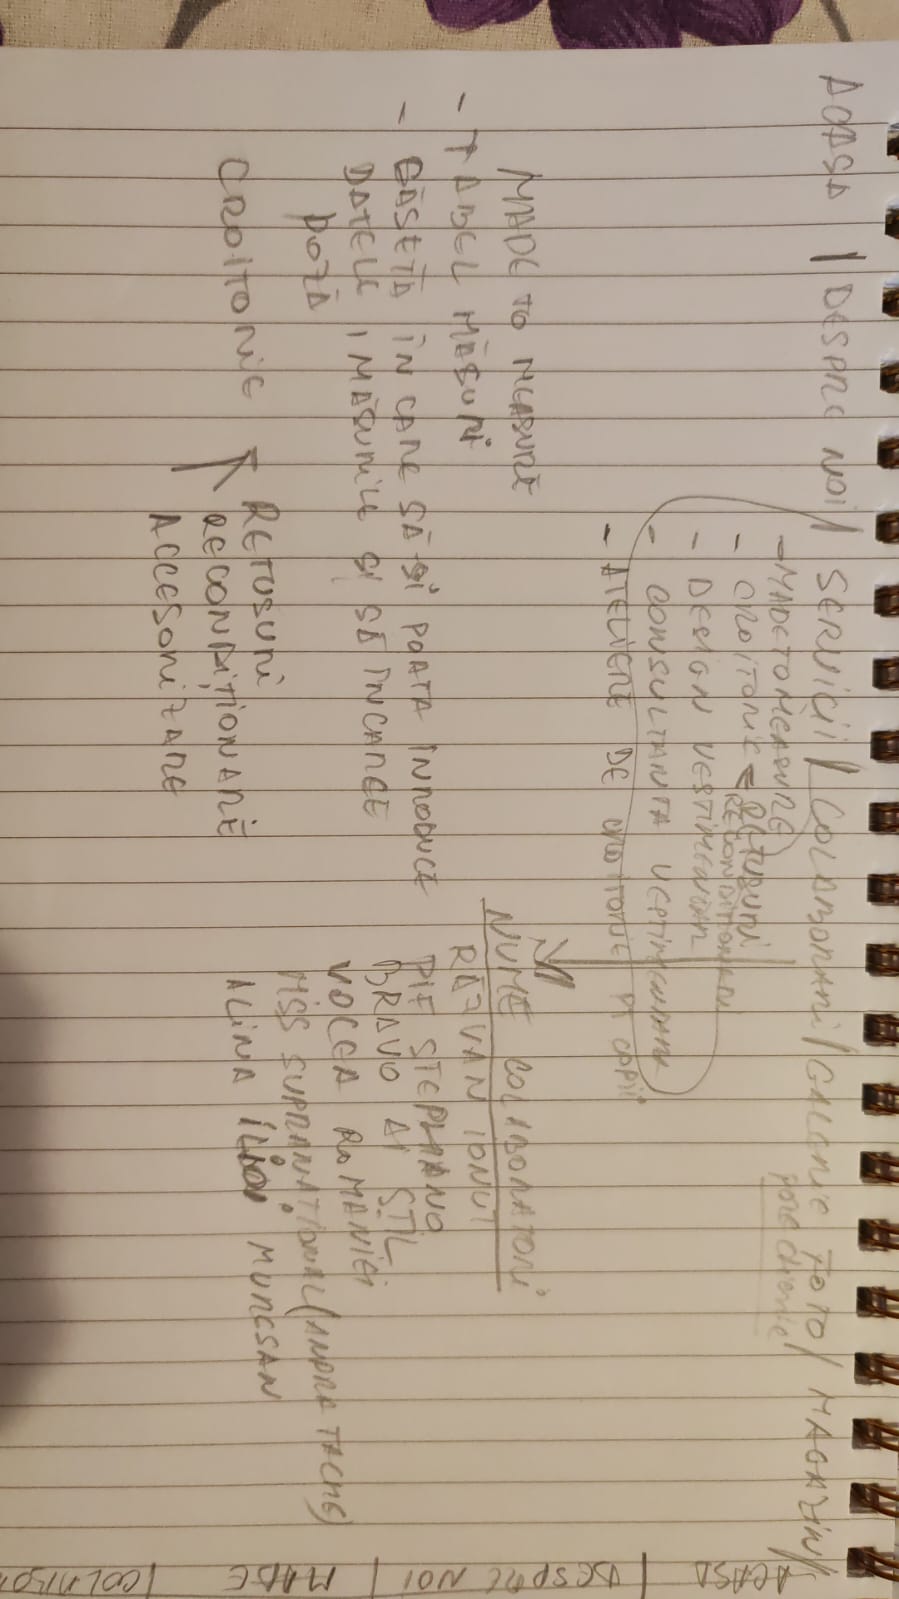 ACASA | DESPRE NOI / SERVICII / COLABORARI / GALERIE FOTO / MAGAZIN /
poze cliente
- MADE TO MEASURE
- CROITORIE - RETUSURI
RECONDITIONARI
- DESIGN VESTIMENTAR
- CONSULTANTA VESTIMENTARA
- ATELIERE DE CROITORIE PT COPII
MADE TO MEASURE
- TABEL MĂSURI
- CĂSETĂ ÎN CARE SĂ-ȘI POATĂ INRODUCE
DATELE, MĂSURILE ȘI SĂ ÎNCARCE
POZĂ
CROITORIE - RETUSURI
RECONDIȚIONARE
ACCESORIZARE
NUME COLABORATORI
RĂZVAN IONUT
PIF STEPHANO
BRAVO AI STIL
VOCEA ROMÂNIEI
MISS SUPRANATIONAL (ANDRA TACHE)
ALINA MURESAN
ACASA | DESPRE NOI | MADE